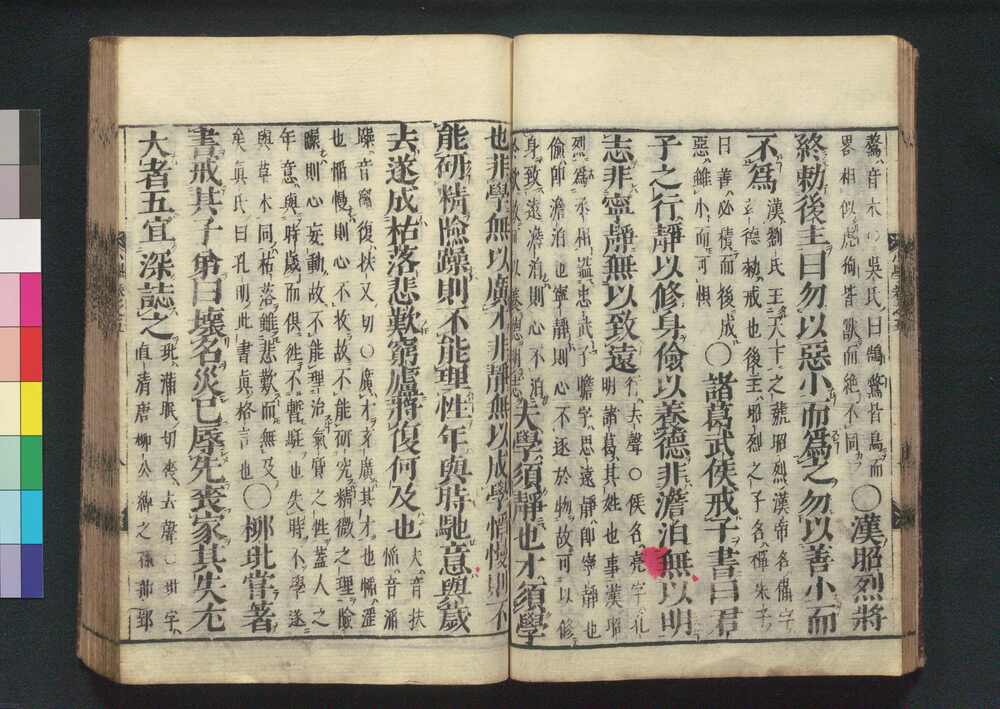 鶩音木○吳氏曰鵠鶩皆鳥而
畧相似虎狗皆獸而絶不同○漢昭烈將
終勅後主曰勿以惡小而爲之勿以善小而
不爲漢劉氏王天下之號昭烈漢帝名備字
玄德勅戒也後主昭烈之子名禪朱子
曰善必積而後成
惡雖小而可懼○諸葛武侯戒子書曰君
子之行靜以修身儉以養德非澹泊無以明
志非寧靜無以致遠行去聲○侯名亮字孔
明諸葛其姓也事漢昭
烈爲丞相謚忠武子瞻字思遠靜即寧靜也
儉即澹泊也寧靜則心不逐於物故可以修
身致遠澹泊則心不汨
夫學須靜也才須學
也非學無以廣才非靜無以成學慆慢則不
能研精險躁則不能理性年與時馳意與歲
去遂成枯落悲歎窮廬將復何及也夫音扶
慆音滔
躁音竈復扶又切○廣才廣其才也慆滛
也慆慢則心不收故不能研究精微之理險
躁則心妄動故不能理治氣質之性蓋人之
年意與時歲而俱徃不暫駐也失時不學遂
與草木同枯落雖悲歎而無及
矣眞氏曰孔明此書眞格言也○柳玭嘗著
書戒其子弟曰壞名災己辱先喪家其失尤
大者五宜深誌之玭蒲眠切喪去聲○玭字
直清唐柳公綽之孫節郢